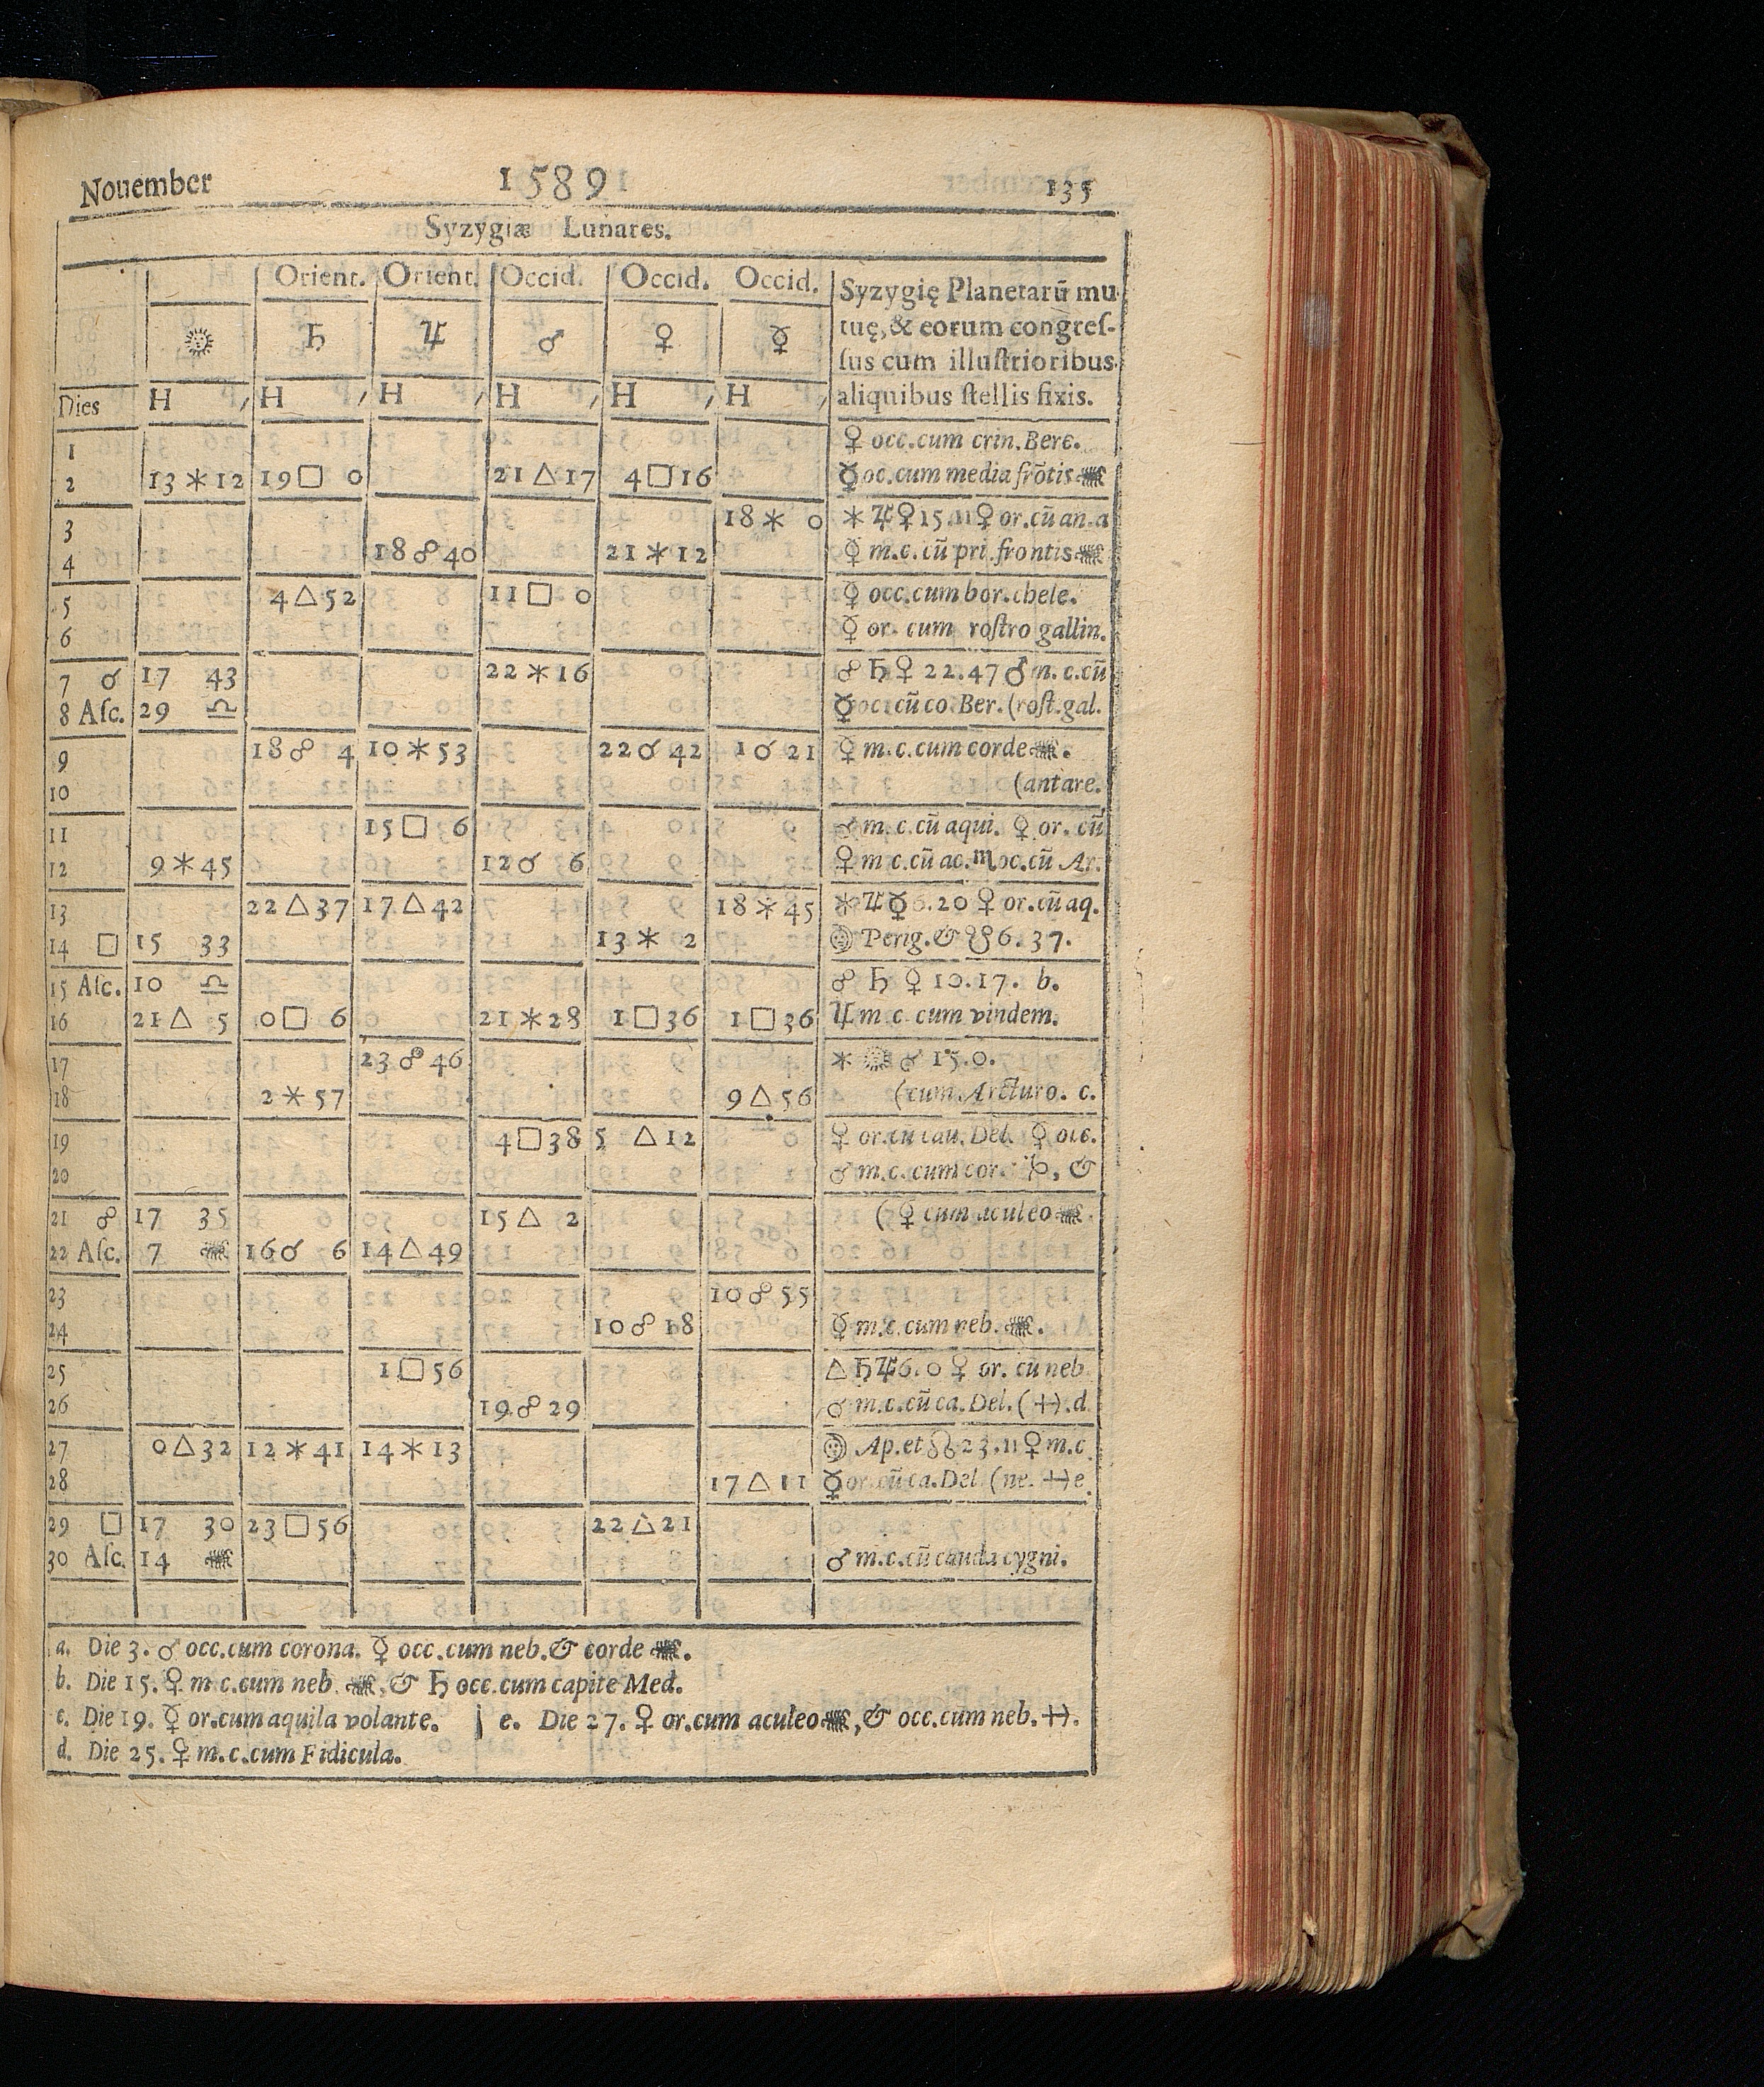 Nouember 1589 135
Syzygiæ Lunares.
Orient. Orient. Occid. Occid. Occid. Syzygię Planetarū mu
☉ ♄ ♃ ♂ ♀ ☿ tuę, & eorum congreſ-
ſus cum illuſtrioribus
Dies H , H , H , H , H , H , aliquibus ſtellis fixis.
1 ♀ occ.cum crin.Bere.
2 13 ⚹ 12 19 □ 0 21 △ 17 4 □ 16 ☿ oc.cum media frōtis ♏
3 18 ⚹ 0 ⚹ ♃ ♀ 15.11 ♀ or.cū an.a
4 18 ☍ 40 21 ⚹ 12 ☿ m.c.cū pri.frontis ♏
5 4 △ 52 11 □ 0 ☿ occ.cum bor.chele.
6 ☿ or. cum roſtro gallin.
7 ☌ 17 43 22 ⚹ 16 ☍ ♄ ♀ 22.47 ♂ m.c.cū
8 Aſc. 29 ♎ ☿ occ.cū co.Ber.(roſt.gal.
9 18 ☍ 4 10 ⚹ 53 22 ☌ 42 1 ☌ 21 ☿ m.c.cum corde ♏.
10 (antare.
11 15 □ 6 ♂ m.c.cū aqui. ♀ or. cū
12 9 ⚹ 45 12 ☌ 6 ♀ m c.cū ac.♏ oc.cū Ar.
13 22 △ 37 17 △ 42 18 ⚹ 45 ⚹ ♃ ☿ 6.20 ♀ or.cū aq.
14 □ 15 33 13 ⚹ 2 ☽ Perig.& ☋ 6.37.
15 Aſc. 10 ♎ ☍ ♄ ☿ 10.17. b.
16 21 △ 5 0 □ 6 21 ⚹ 28 1 □ 36 1 □ 36 ♃ m c. cum vindem.
17 23 ☍ 46 ⚹ ☉ ♂ 15.0.
18 2 ⚹ 57 9 △ 56 (cum.Arcturo. c.
19 4 □ 38 5 △ 12 ♀ or.cū cau.Del. ☿ occ.
20 ♂ m.c.cum cor. ♑, &
21 ☍ 17 35 15 △ 2 (☿ cum aculeo ♏.
22 Aſc. 7 ♏ 16 ☌ 6 14 △ 49
23 10 ☍ 55
24 10 ☍ 18 ☿ m.c.cum neb. ♏.
25 1 □ 56 △ ♄ ♃ 6.0 ☿ or. cū neb
26 19 ☍ 29 ♂ m.c.cū ca.Del.(♐).d.
27 0 △ 32 12 ⚹ 41 14 ⚹ 13 ☽ Ap.et ☊ 23.11 ♀ m.c
28 17 △ 11 ☿ or.cū ca.Del (ne. ♐ e.
29 □ 17 30 23 □ 56 22 △ 21
30 Aſc. 14 ♏ ♂ m.c.cū cauda cygni.
a. Die 3. ♂ occ.cum corona. ☿ occ.cum neb.& corde ♏.
b. Die 15. ♀ m c.cum neb. ♏, & ♄ occ.cum capite Med.
c. Die 19. ☿ or.cum aquila volante. | e. Die 27. ♀ or.cum aculeo ♏, & occ.cum neb. ♐.
d. Die 25. ♀ m.c.cum Fidicula.